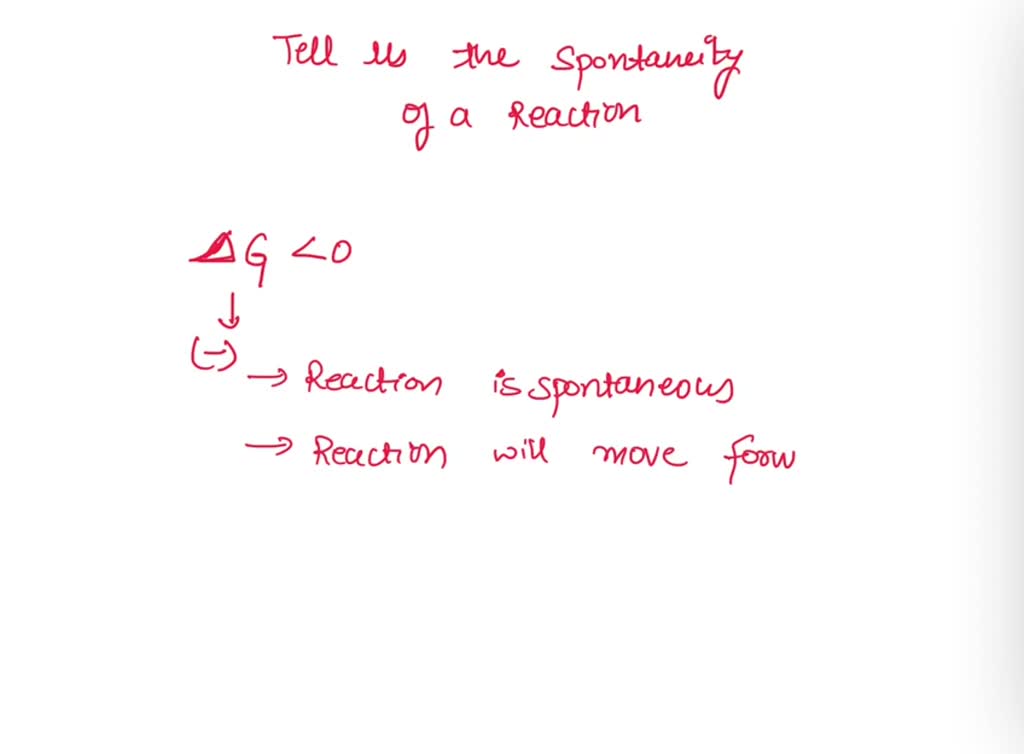 Tell us the Spontaneity
of a Reaction
ΔG <0
↓
(-)
→ Reaction is spontaneous
→ Reaction will move forw